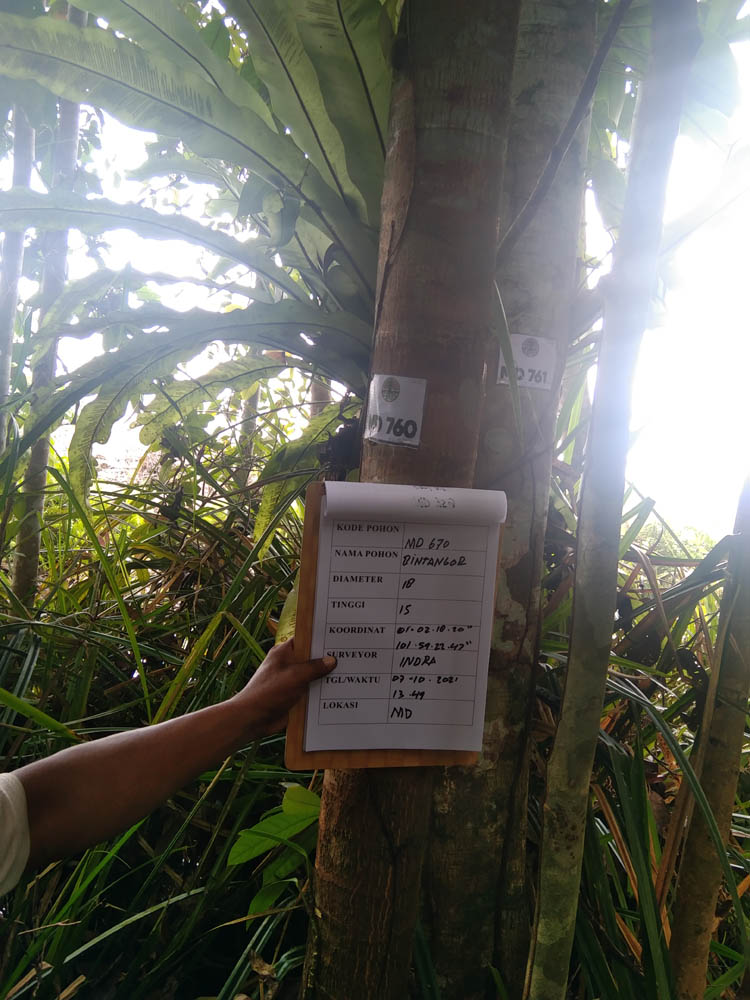 MD 761
MD 760
KODE POHON MD 670
NAMA POHON BINTANGOR
DIAMETER 18
TINGGI 15
KOORDINAT 01-02-18-20"
101-59-22-47"
SURVEYOR INDRA
TGL/WAKTU 07-10-2021
13-49
LOKASI MD